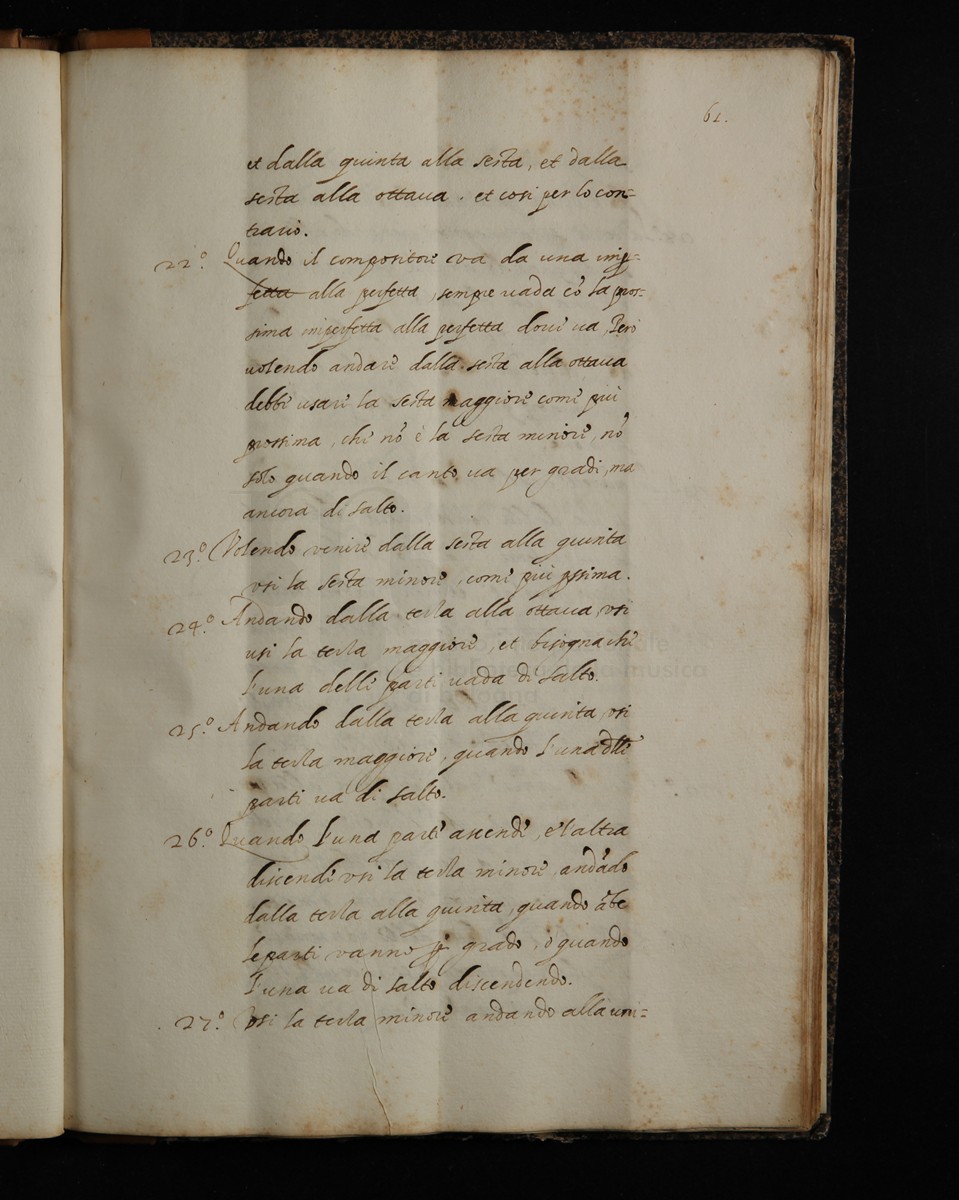 61.
et dalla quinta alla sesta, et dalla
sesta alla ottaua. et cosi per lo con=
trario.
22.° Quando il compositore va da una imp=
fetta alla perfetta, sempre uada cō la pros=
sima imperfetta alla perfetta doue ua, Però
uolendo andare dalla sesta alla ottaua
debbe usare la sesta maggiore come più
prossima, che nō è la sesta minore, nō
solo quando il canto ua per gradi, ma
ancora di salto.
23.° Volendo venire dalla sesta alla quinta
usi la sesta minore, come più pssima.
24.° Andando dalla terza alla ottaua, usi
usi la terza maggiore, et bisogna che
l'una delle parti uada di salto.
25.° Andando dalla terza alla quinta usi
la terza maggiore, quando l'una dlle
parti ua di salto.
26.° Quando l'una parte ascende, e l'altra
discende usi la terza minore, andādo
dalla terza alla quinta, quando ābe
le parti vanno p grado, ò quando
l'una ua di salto discendendo.
27.° Vsi la terza minore andando alla uni=